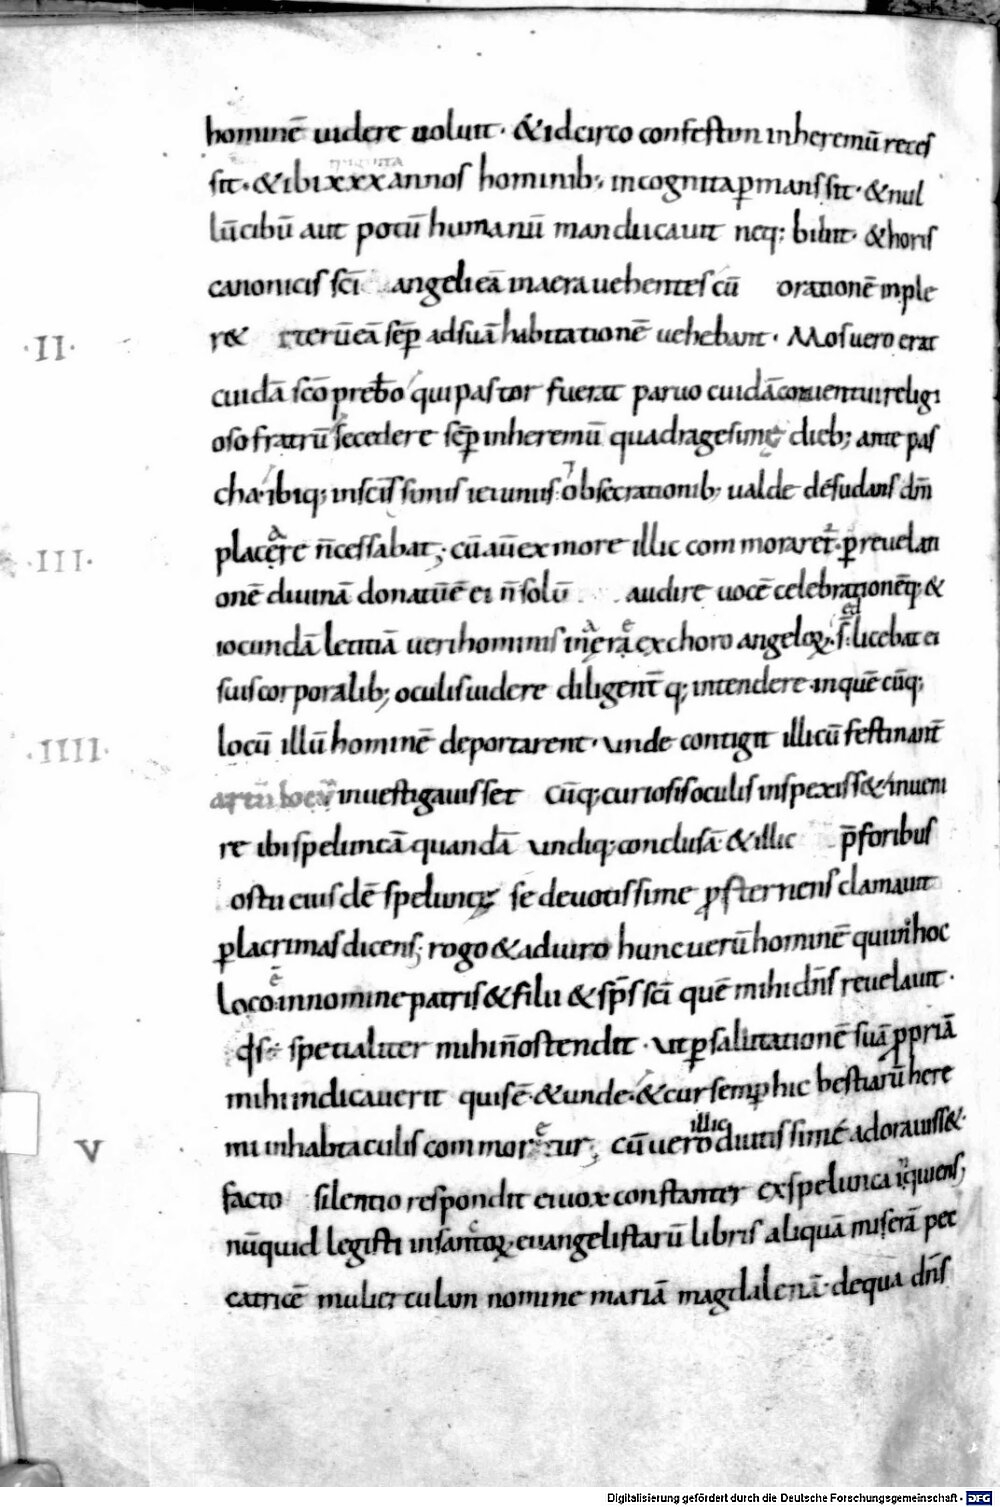 hominē uidere uoluit· & idcirco confestim inheremū recef
sit·&ibixxxannos hominib; incognita ꝑmansſit·& nul
lū cibū aut potū humanū manducauit neq; bibit· & horis
canonicis sc̄i angeli eā inaera uehentes cū orationē inple
r& iterū eā sēꝑ adsuā habitationē uehebant· Mos uero erat
·II·
cuidā sc̄o prebō qui pastor fuerat paruo cuidā conuentui religi
oso fratrū secedere sēꝑ inheremū quadragesimę dieb; ante pas
cha·ibiq; insc̄issimis ieiuniis ⁊ obsecrationib; ualde desudans dm̄
placere n̄ cessabat; cū aū ex more illic commoraret̄· ꝑ reuelati
·III·
onē diuinā donatū ē ei n̄ solū audire uocē celebrationēq; &
iocundā letitiā ueri hominis inęra ex choro angeloꝝ· sed licebat ei
suis corporalib; oculis uidere diligent̄ q; intendere inquē cūq;
locū illū hominē deportarent· unde contigit illicū festinant̄
·IIII·
artū locū inuestigauisset cūq; curiosis oculis inspexiss& inueni
re ibi speluncā quandā undiq; conclusā·&illic p̄ foribus
ostii eiusdē speluncę se deuotissime ꝓsternens clamauit
ꝑ lacrimas dicens; rogo & adiuro hunc uerū hominē qui in hoc
loco ē in nomine patris & filii & sp̄s sc̄i quē mihi dn̄s reuelauit·
specialiter mihi n̄ ostendit· ut ꝑ salutationē suā ꝓpriā
mihi indicauerit quis ē·&unde·& cur semꝑ hic bestiarū here
mi inhabitaculis commoretur; cū uero illic diutissime adorauiss&·
V
facto silentio respondit ei uox constanter ex spelunca inquiens;
nūquid legisti in sanctoꝝ euangelistarū libris aliquā miserā pec
catricē mulierculam nomine mariā magdalenā· de qua dn̄s
Digitalisierung gefördert durch die Deutsche Forschungsgemeinschaft - DFG